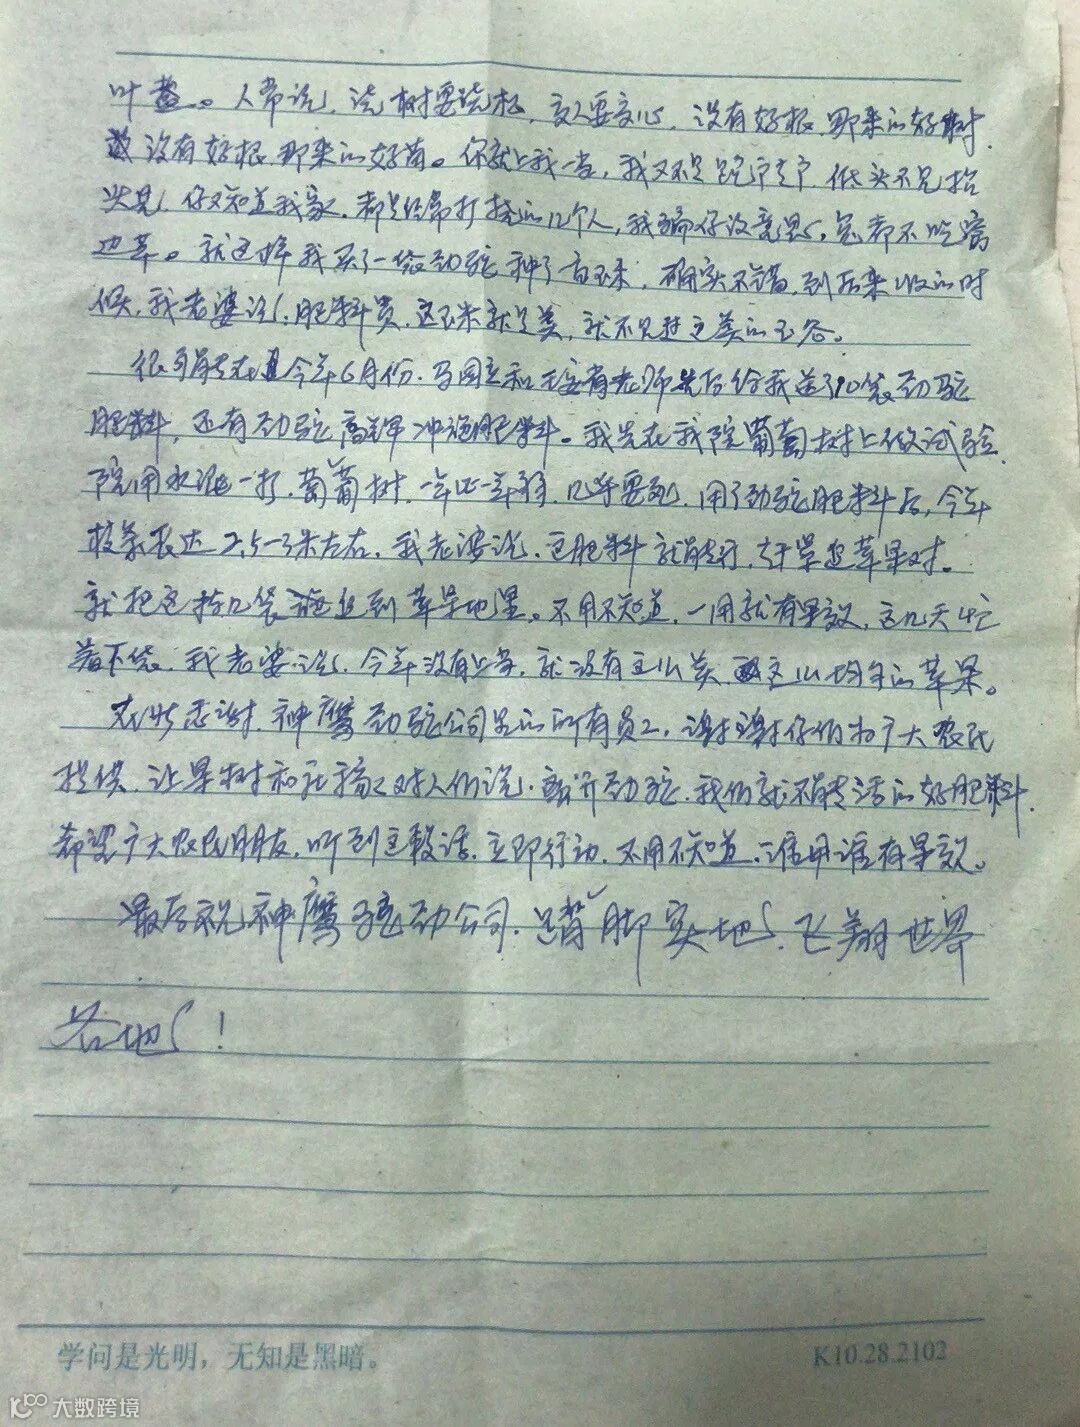 叶茂。人常说，浇树要浇根，交人要交心，没有好根，那来的好树，
没有好根那来的好苗。你就上我一当，我又不是跑了户，低头不见抬
头见，你又知道我家，都是经常打搅的几个人，我骗你没意思，兔都不吃窝
边草。就这样我买了一袋劲驼种了玉米，确实不错，到后来收的时
候，我老婆说，肥料贵，这玉米就是美，就不见过这美的玉谷。
很可能在今年6月份，马国立和老师先后给我送了10袋劲驼
肥料，还有劲驼高钾冲施肥料。我先在我院葡萄树上做试验，
院用水泥一打，葡萄树，一年比一年弱，几乎要死，用了劲驼肥料后，今年
枝条长达2.5-3米左右，我老婆说，这肥料就能行，赶紧追苹果树。
就把这十几袋追到苹果地里。不用不知道，一用就有果效，这几天忙
着下袋，我老婆说，今年没有上当，就没有这么美，这么均匀的苹果。
在此感谢，神鹰劲驼公司的所有员工，谢谢你们为广大农民
提供，让果树和庄稼对人们说，离开劲驼，我们就不能活的好肥料，
希望广大农民朋友，听到这段话，立即行动，不用不知道，谁用谁有果效。
最后祝神鹰驼劲公司，踏脚实地，飞翔世界
各地！
学问是光明，无知是黑暗。
K10.28.2102
大数跨境